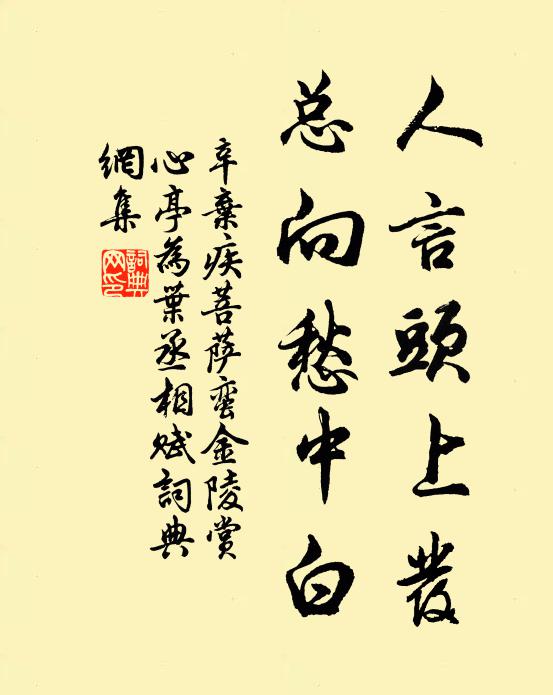 人言頭上發
总向愁中白
辛棄疾菩萨蛮金陵赏
心亭為葉丞相赋詞典
網集
詞典
网印